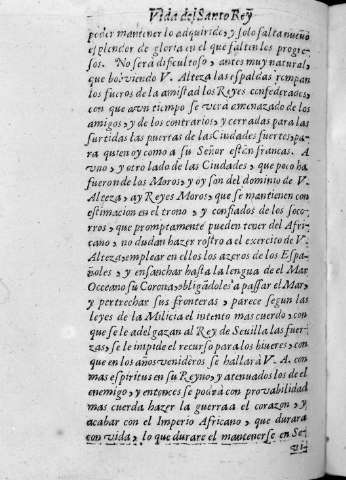 Vida del Santo Rey
poder mantener lo adquirido, y solo falta nuevo
esplendor de gloria en el que falten los progre-
sos. No será dificultoso, antes muy natural,
que bolviendo V. Alteza las espaldas rompan
los fueros de la amistad los Reyes confederados,
con que a un tiempo se verà amenazado de los
amigos, y de los contrarios, y cerradas para las
surtidas las puertas de las Ciudades fuertes, pa-
ra quien oy como a su Señor estàn francas. A
uno, y otro lado de las Ciudades, que poco ha
fueron de los Moros, y oy son del dominio de V.
Alteza, ay Reyes Moros, que se mantienen con
estimacion en el trono, y confiados de los soco-
rros, que promptamente pueden tener del Afri-
cano, no dudan hazer rostro a el exercito de V.
Alteza, emplear en ellos los azeros de los Espa-
ñoles, y ensanchar hasta la lengua de el Mar
Occeano su Corona, obligãdoles a passar el Mar,
y pertrechar sus fronteras, parece segun las
leyes de la Milicia el intento mas cuerdo, con
que se le adelgazan al Rey de Sevilla las fuer-
zas, se le impide el recurso para los viveres, con
que en los años venideros se hallarà V. A. con
mas espiritus en su Reyno, y atenuados los de el
enemigo, y entonces se podrà con provabilidad
mas cuerda hazer la guerra a el corazon, y
acabar con el Imperio Africano, que durara
con vida, lo que durare el mantenerse en Se-
vi-